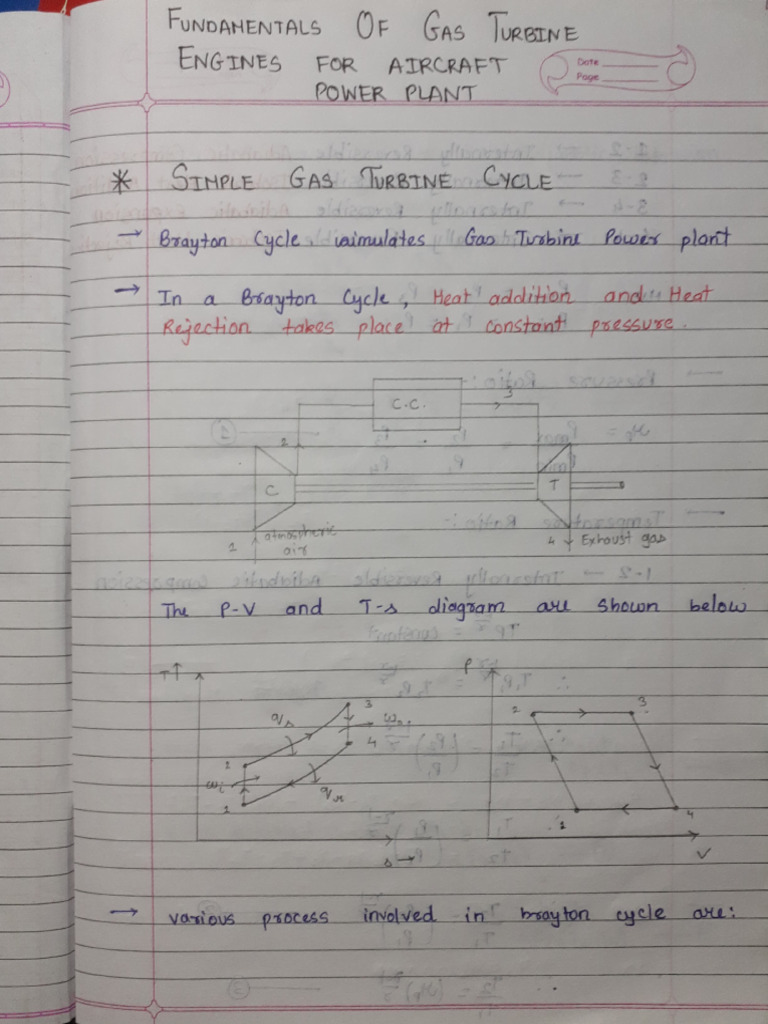 FUNDAMENTALS OF GAS TURBINE
ENGINES FOR AIRCRAFT
POWER PLANT
Date
Page
* SIMPLE GAS TURBINE CYCLE
→ Brayton Cycle Gas Turbine Power plant
→ In a Brayton Cycle, Heat addition and Heat
Rejection takes place at constant pressure.
C.C.
3
2
C
T
1
atmospheric
air
4
Exhaust gas
The P-V and T-s diagram are shown below
T↑
3
4
2
1
s→
P
2
3
1
4
V
→ various process involved in brayton cycle are: